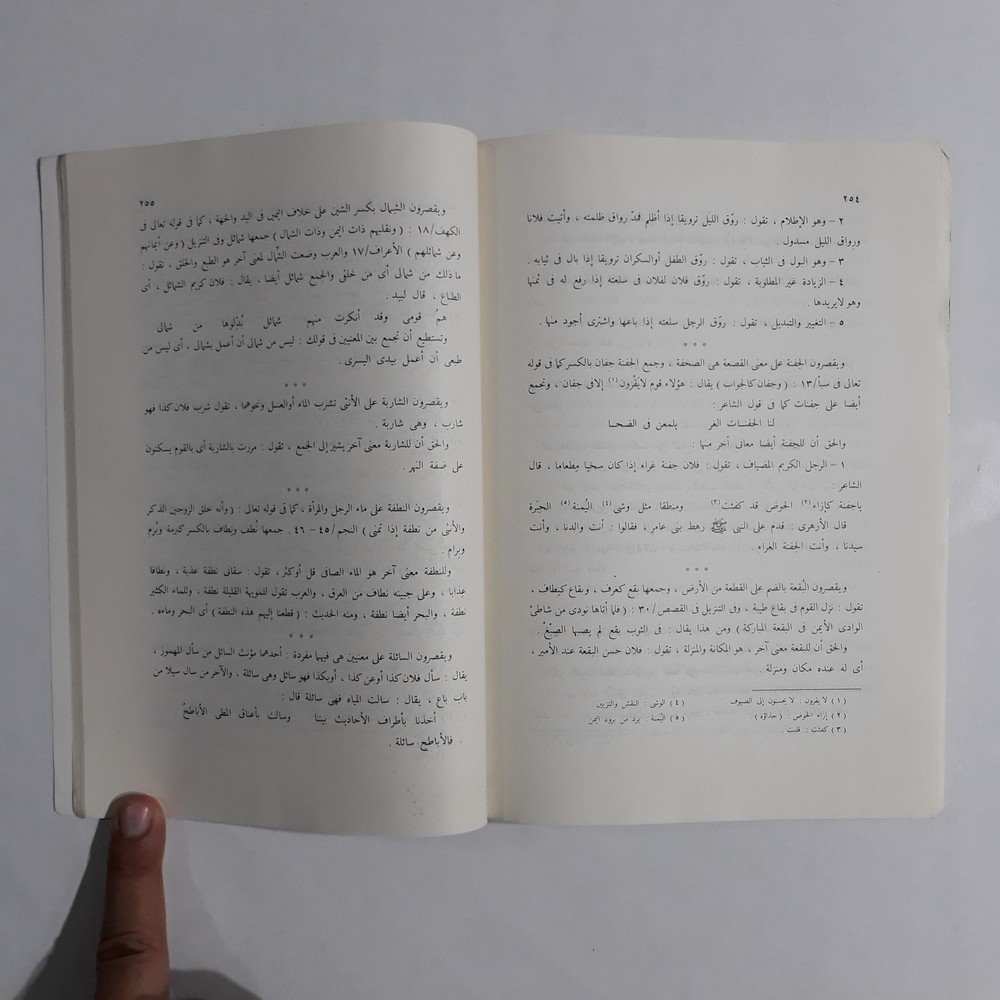 ٢٥٤
٢ – وهو الإظلام ، تقول : روّق الليل ترويقا إذا أظلم فمدّ رواق ظلمته ، وأتيت فلانا
ورواق الليل مسدول .
٣ – وهو البول فى الثياب ، تقول : روّق الطفل أوالسكران ترويقا إذا بال فى ثيابه .
٤ – الزيادة غير المطلوبة ، تقول : روّق فلان لفلان فى سلعته إذا رفع له فى ثمنها
وهو لايريدها .
٥ – التغيير والتبديل ، تقول : روّق الرجل سلعته إذا باعها واشترى أجود منها .
* * *
ويقصرون الجفنة على معنى القصعة هى الصحفة ، وجمع الجفنة جفان بالكسر كما فى قوله
تعالى فى سبأ/١٣ : ( وجفان كالجواب ) يقال : هؤلاء قوم لايَقْرون(١) إلافى جفان ، وتجمع
أيضا على جفنات كما فى قول الشاعر :
لنا الجفنـات الغر يلمعن فى الضحـا
والحق أن للجفنة أيضا معانى أخر منها :
١ – الرجل الكريم المضياف ، تقول : فلان جفنة غراء إذا كان سخيا مِطعاما ، قال
الشاعر :
ياجفنة كإزاء(٢) الحوض قد كفئت(٣) ومنطقا مثل وشى(٤) اليُمنة(٥) الحِبَرة
قال الأزهرى : قدم على النبى ﷺ رهط بنى عامر ، فقالوا : أنت والدنا ، وأنت
سيدنا ، وأنت الجفنة الغراء .
* * *
ويقصرون البُقعة بالضم على القطعة من الأرض ، وجمعها بقع كغرَف ، وبقاع كبطاف ،
تقول : نزل القوم فى بقاع طيبة ، وفى التنزيل فى القصص/٣٠ : ( فلما أتاها نودى من شاطئ
الوادى الأيمن فى البقعة المباركة ) ومن هذا يقال : فى الثوب بقع لم يصبها الصِبْغ .
والحق أن للبقعة معنى آخر ، هو المكانة والمنزلة ، تقول : فلان حَسن البقعة عند الأمير ،
أى له عنده مكان ومنزلة .
( ١ ) لا يقرون : لا يحسنون إلى الضيوف
( ٢ ) إزاء الحوض : ( حذاؤه )
( ٣ ) كفئت : قلبت .
( ٤ ) الوشى : النقش والتزيين .
( ٥ ) اليُمنة : برد من برود اليمن
٢٥٥
ويقصرون الشِمال بكسر الشين على خلاف اليمين فى اليد والجهة ، كما فى قوله تعالى فى
الكهف/١٨ : ( ونقلبهم ذات اليمن وذات الشمال ) جمعها شمائل وفى التنزيل ( وعن أيمانهم
وعن شمائلهم ) الأعراف/١٧ والعرب وضعت الشِّمال لمعنى آخر هو الطبع والخلق ، تقول :
ماذلك من شمالى أى مَن خلقى والجمع شمائل أيضا ، يقال : فلان كريم الشمائل ، أى
الطباع ، قال لبيد .
همُ قومى وقد أنكرت منهم شمائل بُدِّلوها من شمالى
وتستطيع أن تجمع بين المعنيين فى قولك : ليس من شمالى أن أعمل بشمالى ، أى ليس من
طبعى أن أعمل بيدى اليسرى .
* * *
ويقصرون الشاربة على الأنثى تشرب الماء أوالعسل ونحوهما ، تقول شرب فلان كذا فهو
شارب ، وهى شاربة .
والحق أن للشاربة معنى آخر يشير إلى الجمع ، تقول : مررت بالشاربة أى بالقوم يسكنون
على ضفة النهر .
* * *
ويقصرون النطفة على ماء الرجل والمرأة ، كما فى قوله تعالى : ( وأنه خلق الزوجين الذكر
والأنثى من نطفة إذا تمنى ) النجم/٤٥ – ٤٦ . جمعها نُطف ونطاف بالكسر كبرمة وبُرم
وبرام .
وللنطفة معنى آخر هو الماء الصافى قل أوكثر ، تقول : سقانى نطفة عذبة ، ونطافا
عذابا ، وعلى جبينه نطاف من العرق ، والعرب تقول للمويهة القليلة نطفة ، وللماء الكثير
نطفة ، والبحر أيضا نطفة ، ومنه الحديث : ( قطعنا إليهم هذه النطفة ) أى البحر وماءه .
* * *
ويقصرون السائلة على معنيين هى فيهما مفردة : أحدهما مؤنث السائل من سأل المهموز ،
يقال : سأل فلان كذا أوعن كذا ، أوبكذا فهو سائل وهى سائلة ، والآخر من سال سيلا من
باب باع ، يقال : سالت المياه فهى سائلة قال :
أخذنا بأطراف الأحاديث بيننا وسالت بأعناق المطى الأباطحُ
فالأباطح سائلة .